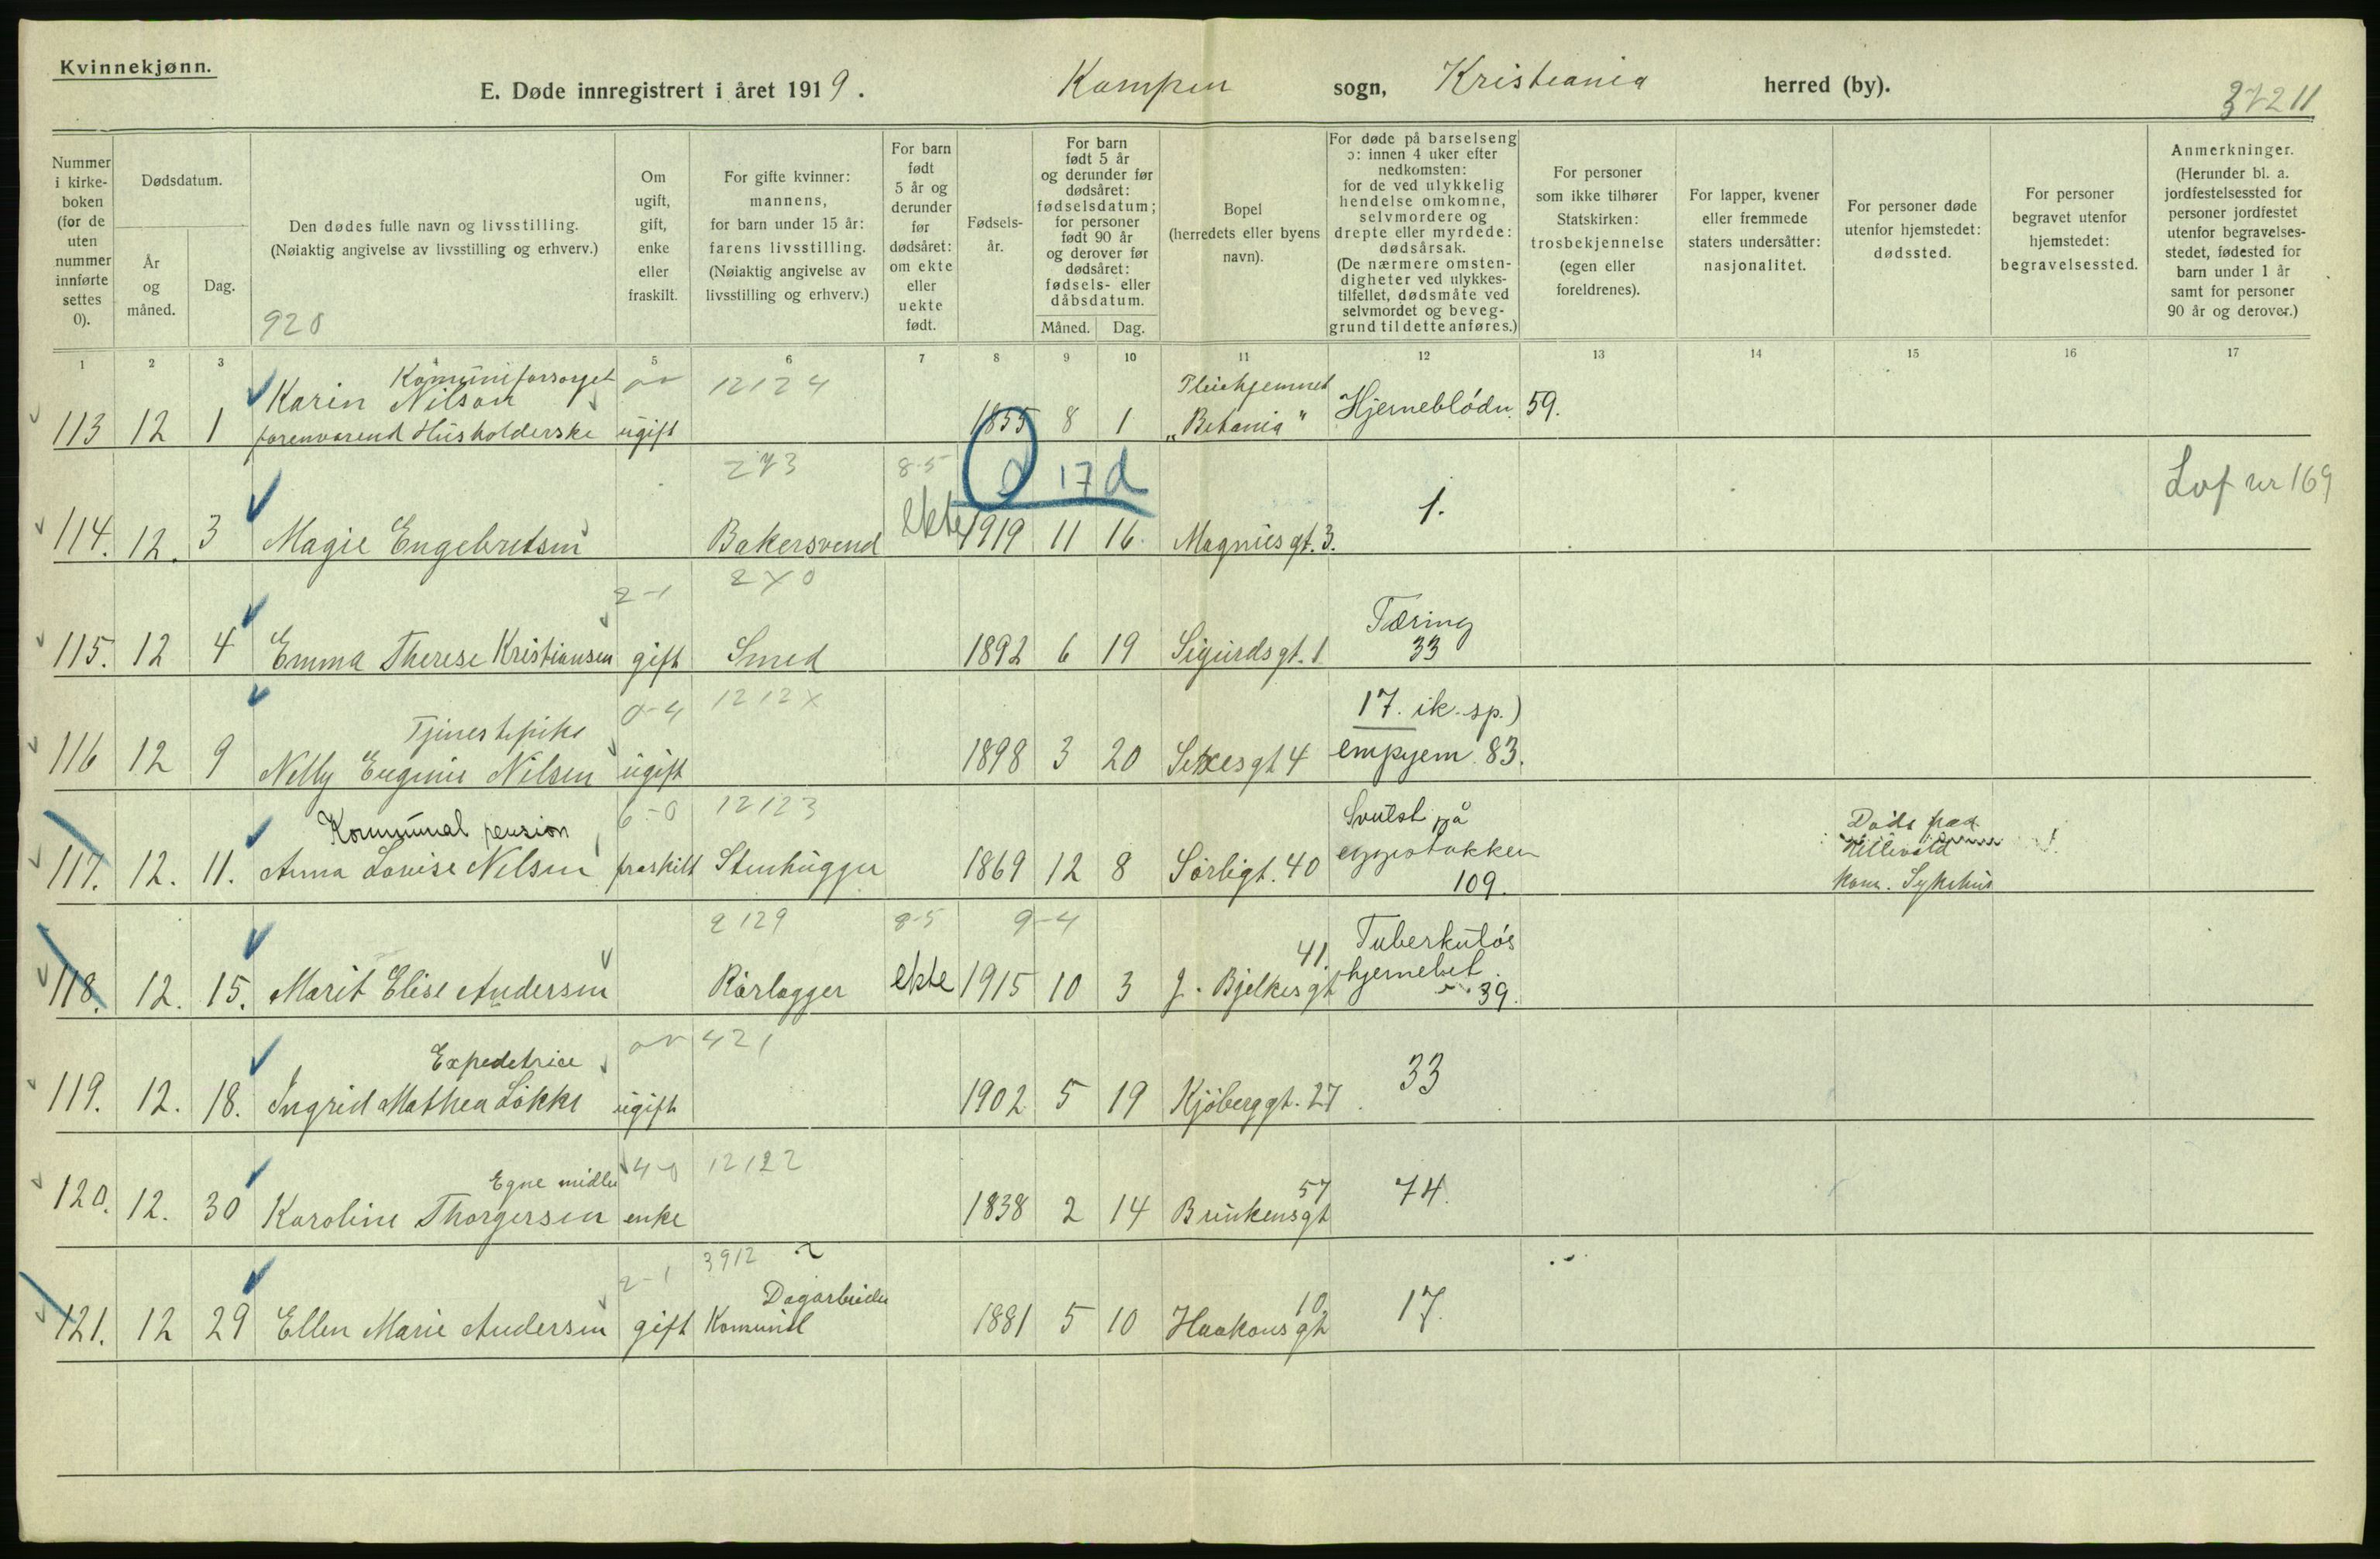 Kvinnekjønn.
E. Døde innregistrert i året 1919. Kampen sogn, Kristiania herred (by).
37211
Nummer i kirke-boken (for de uten nummer innførte settes 0).
Dødsdatum.
År og måned.
Dag.
Den dødes fulle navn og livsstilling.
(Nøiaktig angivelse av livsstilling og erhverv.)
920
Om ugift, gift, enke eller fraskilt.
For gifte kvinner: mannens, for barn under 15 år: farens livsstilling. (Nøiaktig angivelse av livsstilling og erhverv.)
For barn født 5 år og derunder før dødsåret: om ekte eller uekte født.
Fødsels-år.
For barn født 5 år og derunder før dødsåret: fødselsdatum; for personer født 90 år og derover før dødsåret: fødsels- eller dåbsdatum.
Måned. Dag.
Bopel (herredets eller byens navn).
For døde på barselseng ɔ: innen 4 uker efter nedkomsten: for de ved ulykkelig hendelse omkomne, selvmordere og drepte eller myrdede: dødsårsak. (De nærmere omsten-digheter ved ulykkes-tilfellet, dødsmåte ved selvmordet og beveg-grund til dette anføres.)
For personer som ikke tilhører Statskirken: trosbekjennelse (egen eller foreldrenes).
For lapper, kvener eller fremmede staters undersåtter: nasjonalitet.
For personer døde utenfor hjemstedet: dødssted.
For personer begravet utenfor hjemstedet: begravelsessted.
Anmerkninger. (Herunder bl. a. jordfestelsessted for personer jordfestet utenfor begravelses-stedet, fødested for barn under 1 år samt for personer 90 år og derover.)
1 2 3 4 5 6 7 8 9 10 11 12 13 14 15 16 17
Komuneforsorget 12124 Pleiehjemmet
113 12 1 Karin Nilson forenværend Husholderske ugift 1855 8 1 „Betania" Hjerneblödn. 59.
273 8-5 0 17 d Lof nr 169
114. 12. 3 Magie Engebretsen Bakersvend ekte 1919 11 16. Magnus gt. 3. 1.
2-1 2x0 Tæring
115. 12 4 Emma Therese Kristiansen gift Smed 1892 6 19 Sigurds gt. 1 33
Tjenestepike 0-4 1212x 17. ik. sp.)
116 12 9 Nelly Eugenie Nilsen ugift 1898 3 20 Sexesgt 4 empyem 83.
Kommunal pension 6-0 12123 Svulst på Döde paa
117. 12. 11. Anna Lovise Nilsen fraskilt Stenhugger 1869 12 8 Sörligt. 40 eggestokken 109. Ullevold kom. Sykehus
2129 8-5 9-4 41. Tuberkulös
118. 12. 15. Marit Elise Andersen Rörlegger ekte 1915 10 3 J. Bjelkes gt hjernebet. 39.
Expeditrice 421
119. 12. 18. Ingrid Mathea Lökke ugift 1902 5 19 Kjöberggt. 27. 33
Egne midler 4-0 12122 57
120. 12. 30 Karoline Thorgersen enke 1838 2 14 Brinkens gt 74.
2-1 3912 Dagarbeider 10
121. 12 29 Ellen Marie Andersen gift Komunal 1881 5 10 Haakons gt 17.